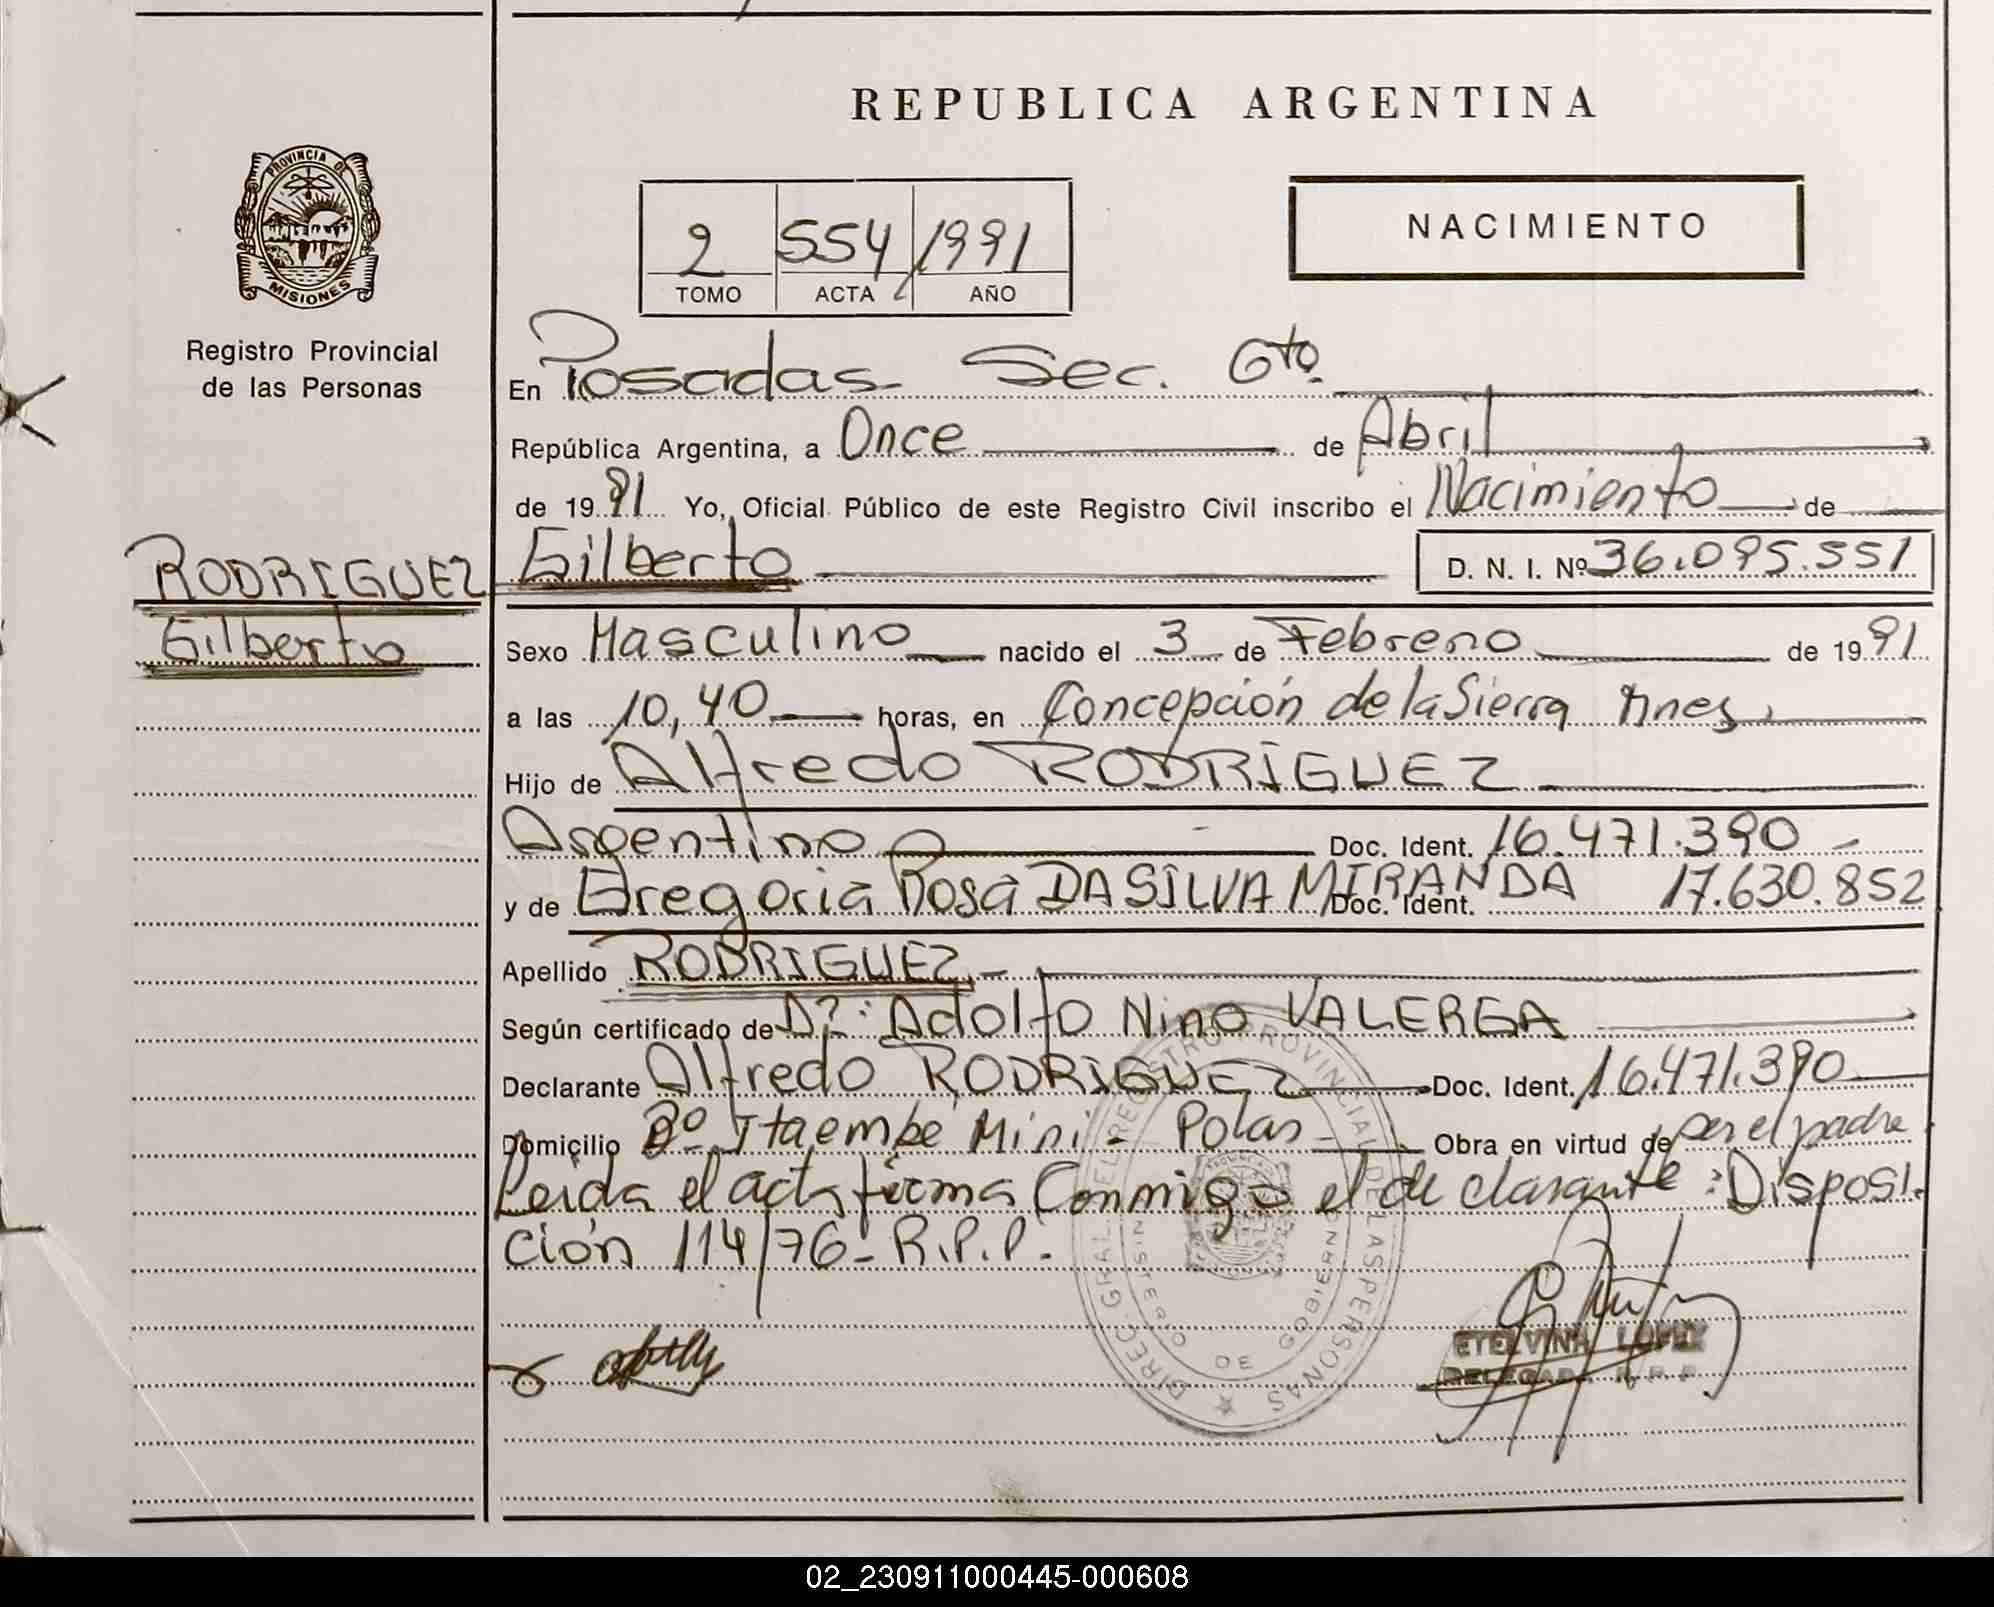 REPUBLICA ARGENTINA
PROVINCIA DE MISIONES
Registro Provincial
de las Personas
2 554 1991
TOMO ACTA AÑO
NACIMIENTO
En Posadas Sec. 6to.
República Argentina, a Once de Abril
de 1991 Yo, Oficial Público de este Registro Civil inscribo el Nacimiento de
RODRIGUEZ
Gilberto
Gilberto D. N. I. Nº 36.095.551
Sexo Masculino nacido el 3 de Febrero de 1991
a las 10,40 horas, en Concepción de la Sierra Mnes,
Hijo de Alfredo RODRIGUEZ
Argentino Doc. Ident. 16.471.390
y de Gregoria Rosa DA SILVA MIRANDA Doc. Ident. 17.630.852
Apellido RODRIGUEZ
Según certificado de Dr. Adolfo Nino VALERGA
Declarante Alfredo RODRIGUEZ Doc. Ident. 16.471.390
Domicilio Bº Itaembé Mini - Pdas Obra en virtud de ser el padre
Leida el acta firma Conmigo el declarante: Disposi-
ción 114/76 - R.P.P.
DIREC. GRAL. DEL REGISTRO PROVINCIAL DE LAS PERSONAS
MINISTERIO DE GOBIERNO
ETELVINA LOPEZ
DELEGADA R.P.P.
02_230911000445-000608